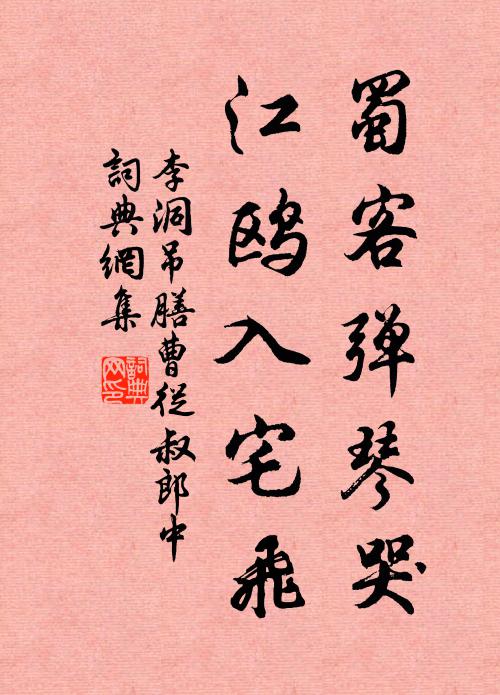 蜀客弹琴哭
江鸥入宅飛
李洞吊膳曹從叔郎中
詞典網集
詞典网印